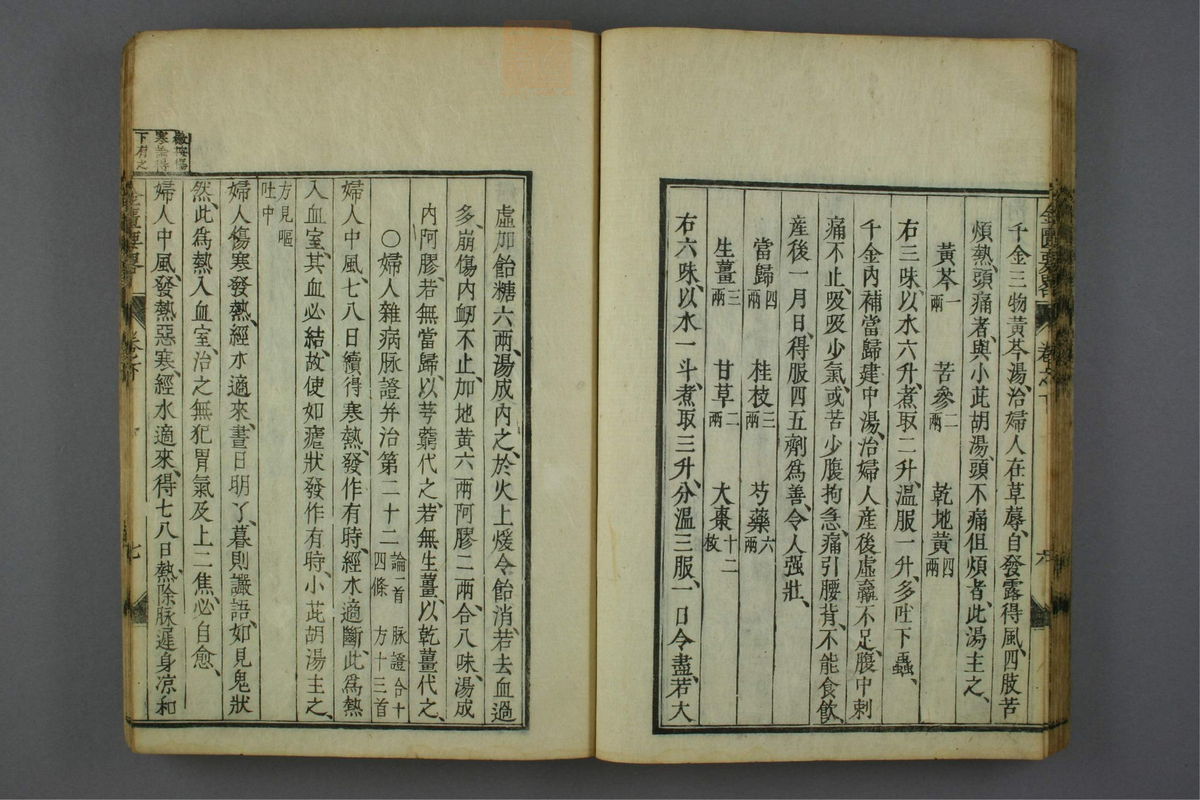 千金三物黃芩湯、治婦人在草蓐、自發露得風、四肢苦
煩熱、頭痛者、與小茈胡湯、頭不痛但煩者、此湯主之、
黃芩一兩　苦參二兩　乾地黃四兩
右三味、以水六升、煮取二升、溫服一升、多吐下蟲、
千金內補當歸建中湯、治婦人產後虛羸不足、腹中刺
痛不止、吸吸少氣、或苦少腹拘急、痛引腰背、不能食飲、
產後一月日、得服四五劑爲善、令人强壯、
當歸四兩　桂枝三兩　芍藥六兩
生薑三兩　甘草二兩　大棗十二枚
右六味、以水一斗、煮取三升、分溫三服、一日令盡、若大
虛加飴糖六兩、湯成內之、於火上煖令飴消、若去血過
多、崩傷內衂不止、加地黄六兩阿膠二兩、合八味、湯成
內阿膠、若無當歸、以芎藭代之、若無生薑、以乾薑代之、
〇婦人雜病脉證并治第二十二 論一首　脉證合十四條　方十三首
婦人中風、七八日續得寒熱、發作有時、經水適斷、此爲熱
入血室、其血必結、故使如瘧狀發作有時、小茈胡湯主之、
方見嘔吐中
婦人傷寒發熱、經水適來、晝日明了、暮則讝語、如見鬼狀
然、此爲熱入血室、治之無犯胃氣及上二焦、必自愈、
婦人中風、發熱惡寒、經水適來、得七八日、熱除脉遲身凉和
金匱要畧
卷之下
七